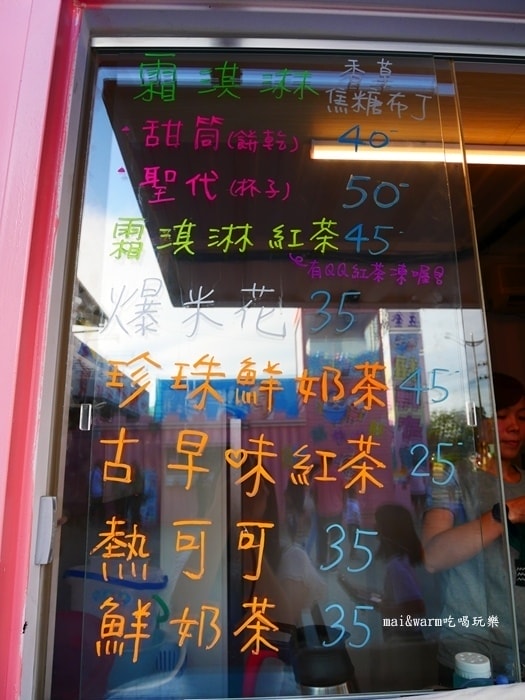 霜淇淋 香草
焦糖布丁
·甜筒(餅乾) 40
·聖代(杯子) 50
霜淇淋紅茶 45
有QQ紅茶凍喔!!
爆米花 35
珍珠鮮奶茶 45
古早味紅茶 25
熱可可 35
鮮奶茶 35
mai&warm吃喝玩樂